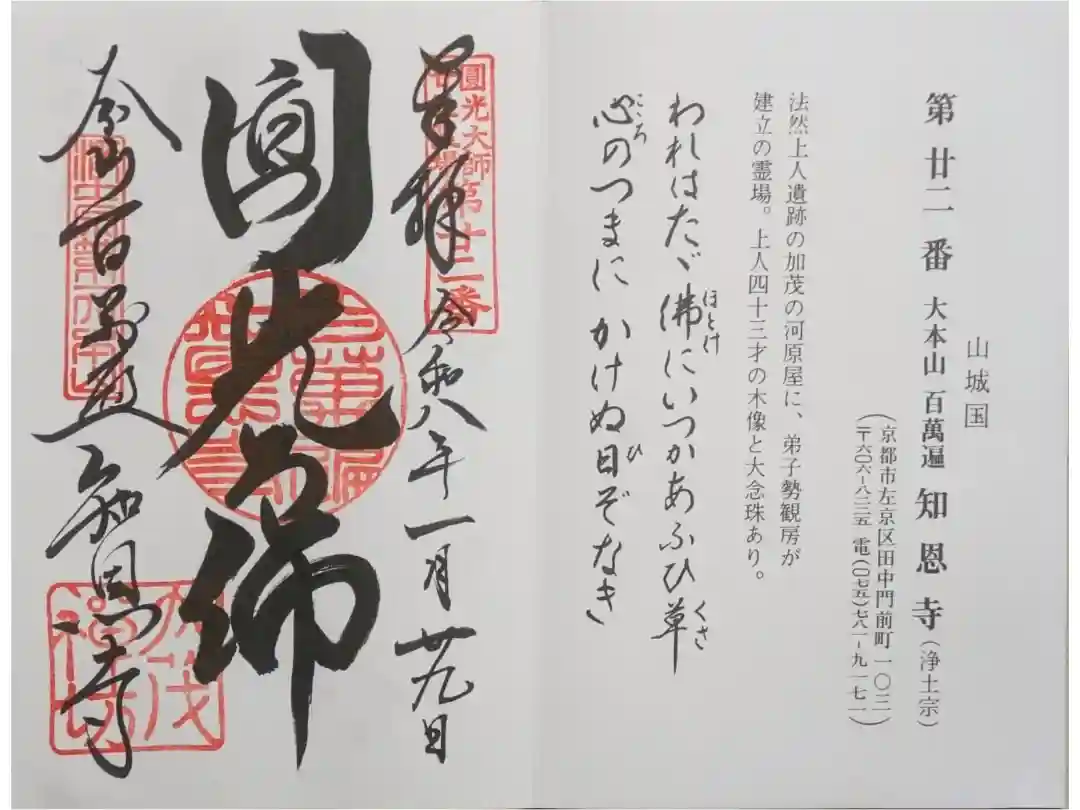 山城国
第廿二番 大本山 百萬遍 知恩寺(浄土宗)
(京都市左京区田中門前町一〇三
〒六〇六-八二二五 電(〇七五)七八一-九一七一)
法然上人遺跡の加茂の河原屋に、弟子勢観房が
建立の霊場。上人四十三才の木像と大念珠あり。
われはたゞ佛にいつかあふひ草
ほとけ
くさ
心のつまに かけぬ日ぞなき
こころ
ひ
圓光大師
第廿二番
奉拝 令和八年一月廿九日
圓光大師
本山百萬遍 知恩寺